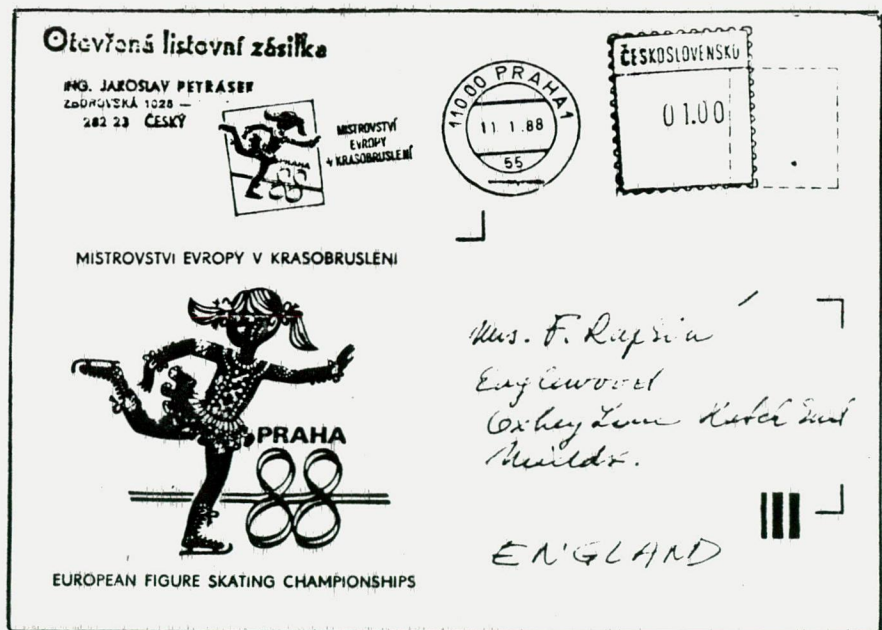 Otevřená listovní zásilka
ING. JAROSLAV PETRÁSEK
1028 –
282 23 ČESKÝ
PRAHA
88
MISTROVSTVÍ
EVROPY
V KRASOBRUSLENÍ
11000 PRAHA 1
11.1.88
55
ČESKOSLOVENSKO
01.00
MISTROVSTVI EVROPY V KRASOBRUSLENI
PRAHA
88
EUROPEAN FIGURE SKATING CHAMPIONSHIPS
Mrs. F.
Englewood
Oxhey Lane Hatch End
ENGLAND